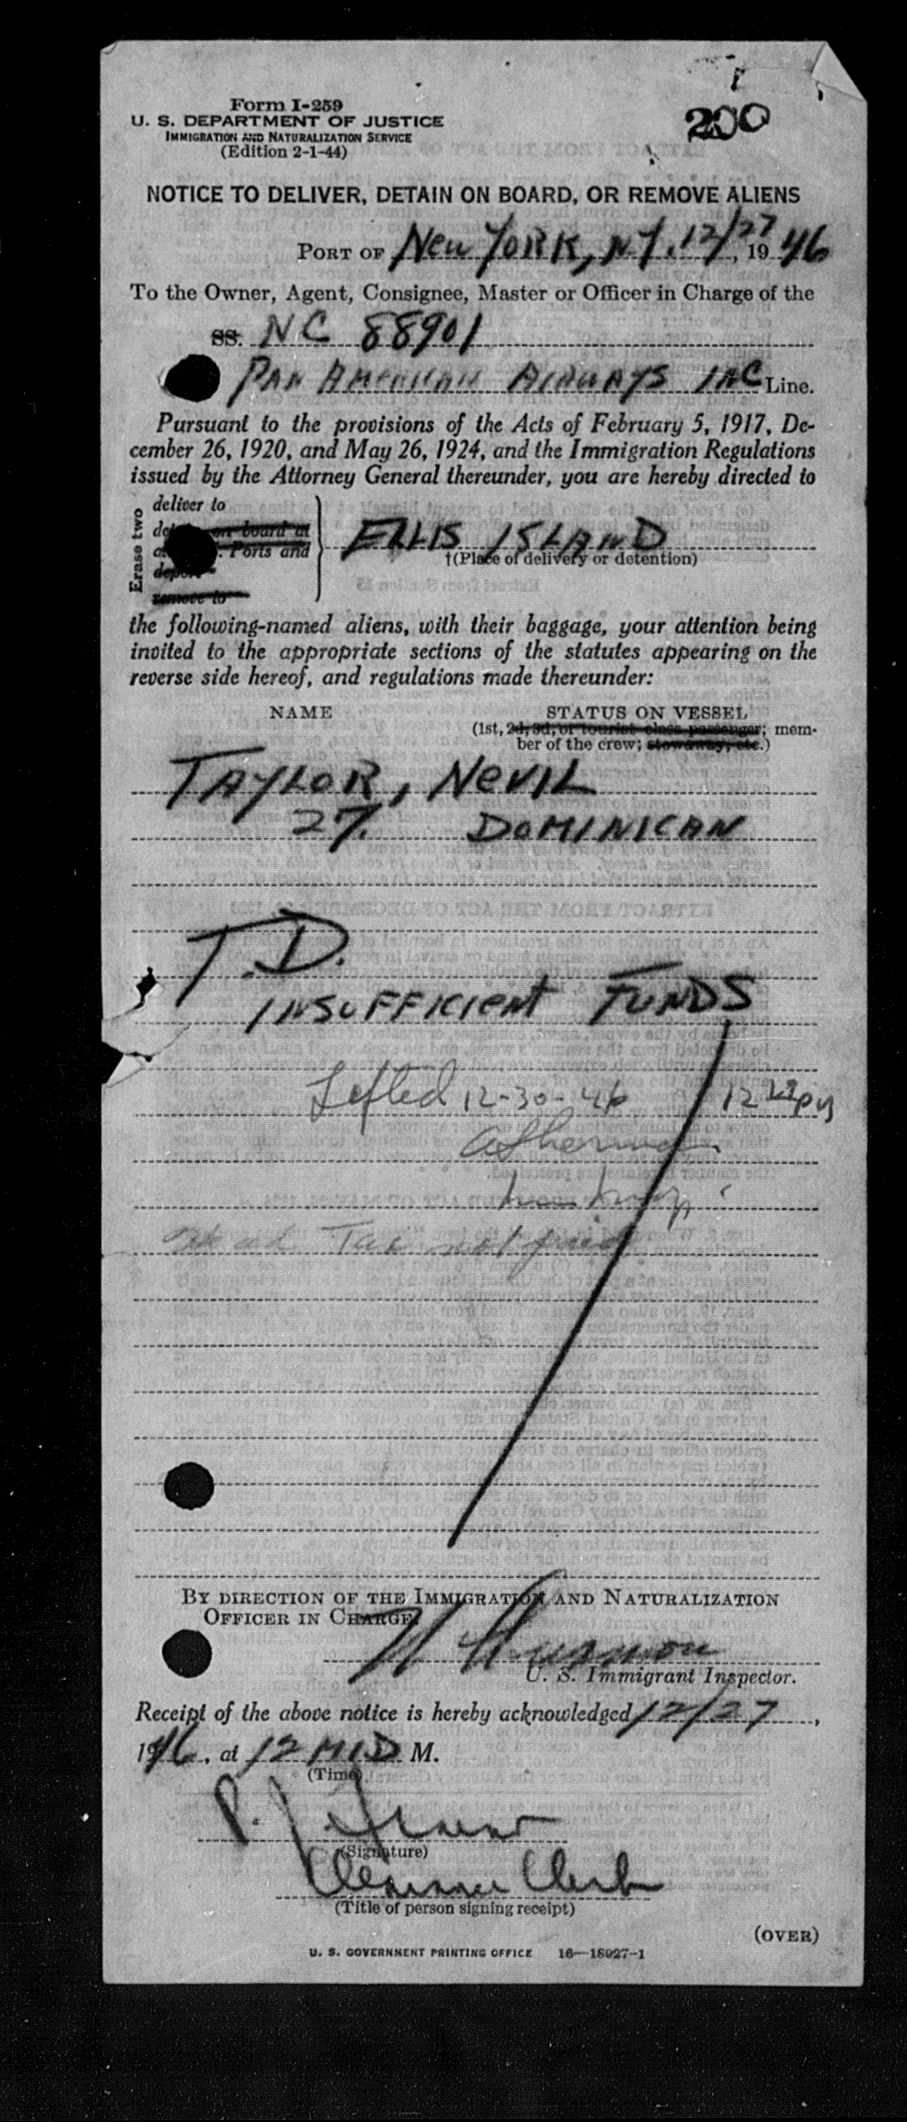 Form I-259
U. S. DEPARTMENT OF JUSTICE
IMMIGRATION AND NATURALIZATION SERVICE
(Edition 2-1-44)
200
NOTICE TO DELIVER, DETAIN ON BOARD, OR REMOVE ALIENS
PORT OF New YORK, NY. 12/27, 1946
To the Owner, Agent, Consignee, Master or Officer in Charge of the
SS. NC 88901
PAN AMERICAN AIRWAYS INC Line.
Pursuant to the provisions of the Acts of February 5, 1917, De-
cember 26, 1920, and May 26, 1924, and the Immigration Regulations
issued by the Attorney General thereunder, you are hereby directed to
Erase two
deliver to
on board at
Ports and
remove to
ELLIS ISLAND
†(Place of delivery or detention)
the following-named aliens, with their baggage, your attention being
invited to the appropriate sections of the statutes appearing on the
reverse side hereof, and regulations made thereunder:
NAME STATUS ON VESSEL
(1st, 2d, 3d, or tourist class passenger; mem-
ber of the crew; stowaway, etc.)
TAYLOR, NEVIL
27. DOMINICAN
T.D.
INSUFFICIENT FUNDS
Lifted 12-30-46 12
Head Tax not paid
BY DIRECTION OF THE IMMIGRATION AND NATURALIZATION
OFFICER IN CHARGE:
U. S. Immigrant Inspector.
Receipt of the above notice is hereby acknowledged 12/27,
1946, at 12 MID M.
(Time)
P. J.
(Signature)
Clearance Clerk
(Title of person signing receipt)
(OVER)
U. S. GOVERNMENT PRINTING OFFICE 16—18027-1